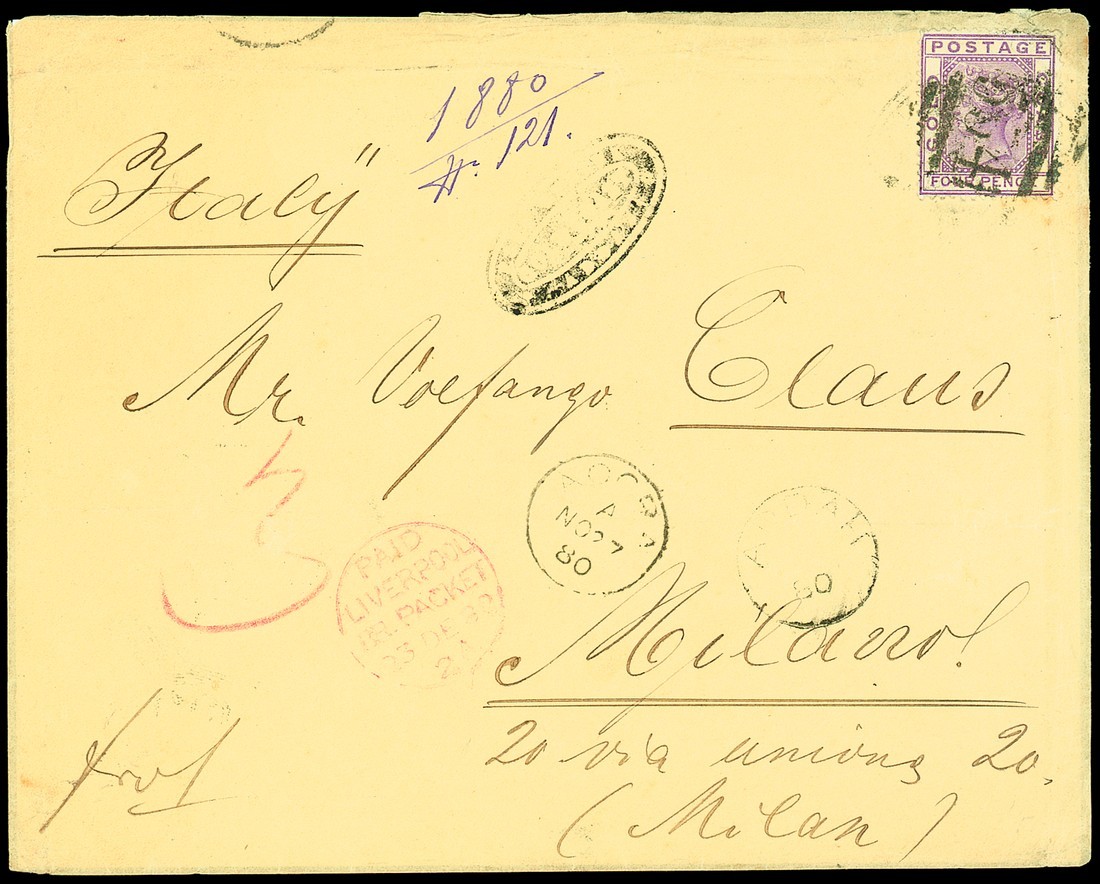 POSTAGE
FOUR PENCE
1880
121.
"Italy"
Mr. Volfango Claus
ACCRA
A
NO 27
80
80
PAID
LIVERPOOL
PACKET
23 DE 80
3
Milano!
20 via unione 20.
(Milan)